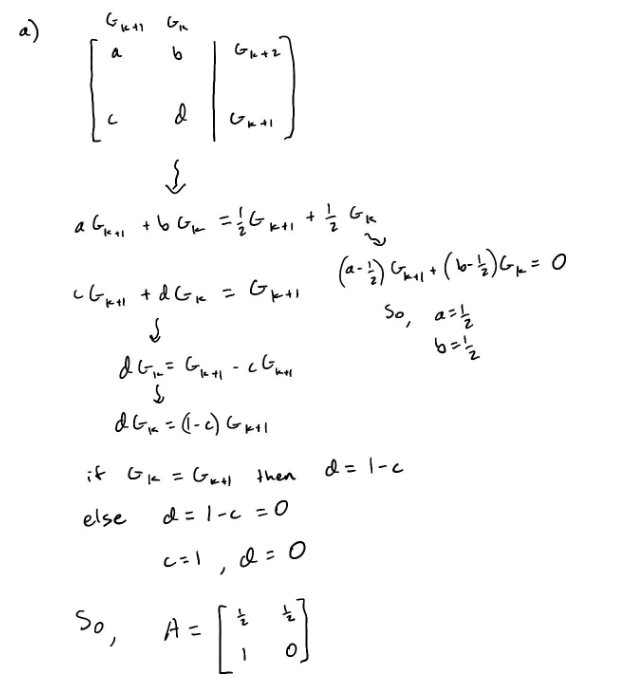 a)
G_{k+1} G_k
a b | G_{k+2}
c d | G_{k+1}
a G_{k+1} + b G_k = ½ G_{k+1} + ½ G_k
(a-½) G_{k+1} + (b-½) G_k = 0
c G_{k+1} + d G_k = G_{k+1}
So, a = ½
b = ½
d G_k = G_{k+1} - c G_{k+1}
d G_k = (1-c) G_{k+1}
if G_k = G_{k+1} then d = 1-c
else d = 1-c = 0
c = 1, d = 0
So, A = [ ½ ½
1 0 ]